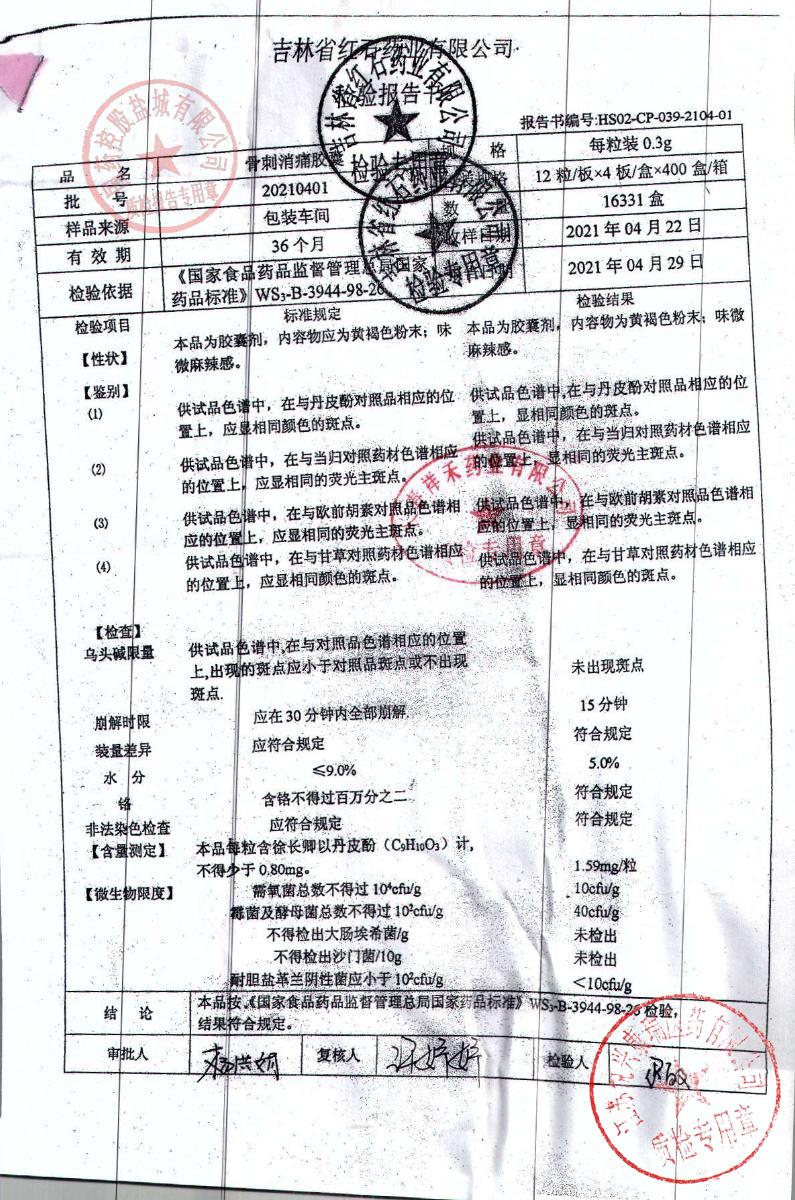 吉林省红石药业有限公司
检验报告书
报告书编号:HS02-CP-039-2104-01
品 名 骨刺消痛胶囊 规 格 每粒装 0.3g
批 号 20210401 12 粒/板×4 板/盒×400 盒/箱
样品来源 包装车间 数 16331 盒
有 效 期 36 个月 收样日期 2021 年 04 月 22 日
检验依据 《国家食品药品监督管理总局国家 2021 年 04 月 29 日
药品标准》WS₃-B-3944-98-26
检验项目 标准规定 检验结果
【性状】 本品为胶囊剂，内容物应为黄褐色粉末；味 本品为胶囊剂，内容物为黄褐色粉末；味微
微麻辣感。 麻辣感。
【鉴别】
(1) 供试品色谱中，在与丹皮酚对照品相应的位 供试品色谱中,在与丹皮酚对照品相应的位
置上，应显相同颜色的斑点。 置上，显相同颜色的斑点。
(2) 供试品色谱中，在与当归对照药材色谱相应 供试品色谱中，在与当归对照药材色谱相应
的位置上，应显相同的荧光主斑点。 的位置上，显相同的荧光主斑点。
(3) 供试品色谱中，在与欧前胡素对照品色谱相 供试品色谱中，在与欧前胡素对照品色谱相
应的位置上，应显相同的荧光主斑点。 应的位置上，显相同的荧光主斑点。
(4) 供试品色谱中，在与甘草对照药材色谱相应 供试品色谱中，在与甘草对照药材色谱相应
的位置上，应显相同颜色的斑点。 的位置上，显相同颜色的斑点。
【检查】
乌头碱限量 供试品色谱中,在与对照品色谱相应的位置
上,出现的斑点应小于对照品斑点或不出现 未出现斑点
斑点.
崩解时限 应在 30 分钟内全部崩解. 15 分钟
装量差异 应符合规定 符合规定
水 分 ≤9.0% 5.0%
铬 含铬不得过百万分之二 符合规定
非法染色检查 应符合规定 符合规定
【含量测定】 本品每粒含徐长卿以丹皮酚（C₉H₁₀O₃）计，
不得少于 0.80mg。 1.59mg/粒
【微生物限度】 需氧菌总数不得过 10⁴cfu/g 10cfu/g
霉菌及酵母菌总数不得过 10²cfu/g 40cfu/g
不得检出大肠埃希菌/g 未检出
不得检出沙门菌/10g 未检出
耐胆盐革兰阴性菌应小于 10²cfu/g <10cfu/g
结 论 本品按《国家食品药品监督管理总局国家药品标准》WS₃-B-3944-98-26 检验，
结果符合规定。
审批人 复核人 检验人
吉林省红石药业有限公司
检验专用章
吉林省红石药业有限公司
检验专用章
控股盐城有限公司
质检报告专用章
祥禾药业有限公司
质检专用章
医药有限公司
质检专用章